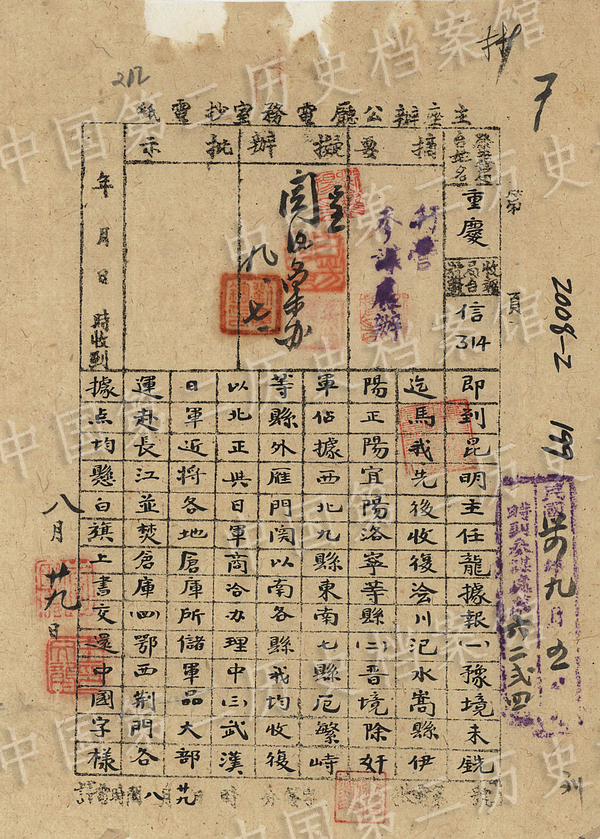 主座辦公廳電務室抄電紙
摘要
擬辦
批示
重慶
信
314
年 月 日 時收到
行營
參謀處辦
九·七
即到昆明主任龍據報(一)豫境未銑
迄馬我先後收復淦川汜水嵩縣伊
陽正陽宜陽洛寧等縣(二)晉境除奸
軍佔據西北九縣東南七縣厄繁峙
等縣外雁門関以南各縣我均收復
以北正與日軍商洽办理中(三)武漢
日軍近將各地倉庫所儲軍品大部
運赴長江並焚倉庫(四)鄂西荆門各
據点均懸白旗上書交還中國字樣
八月
廿九
日
頁
2008-2
199
民國
年九月五
六二弍四
212
34
八
廿九
中国第二历史档案馆